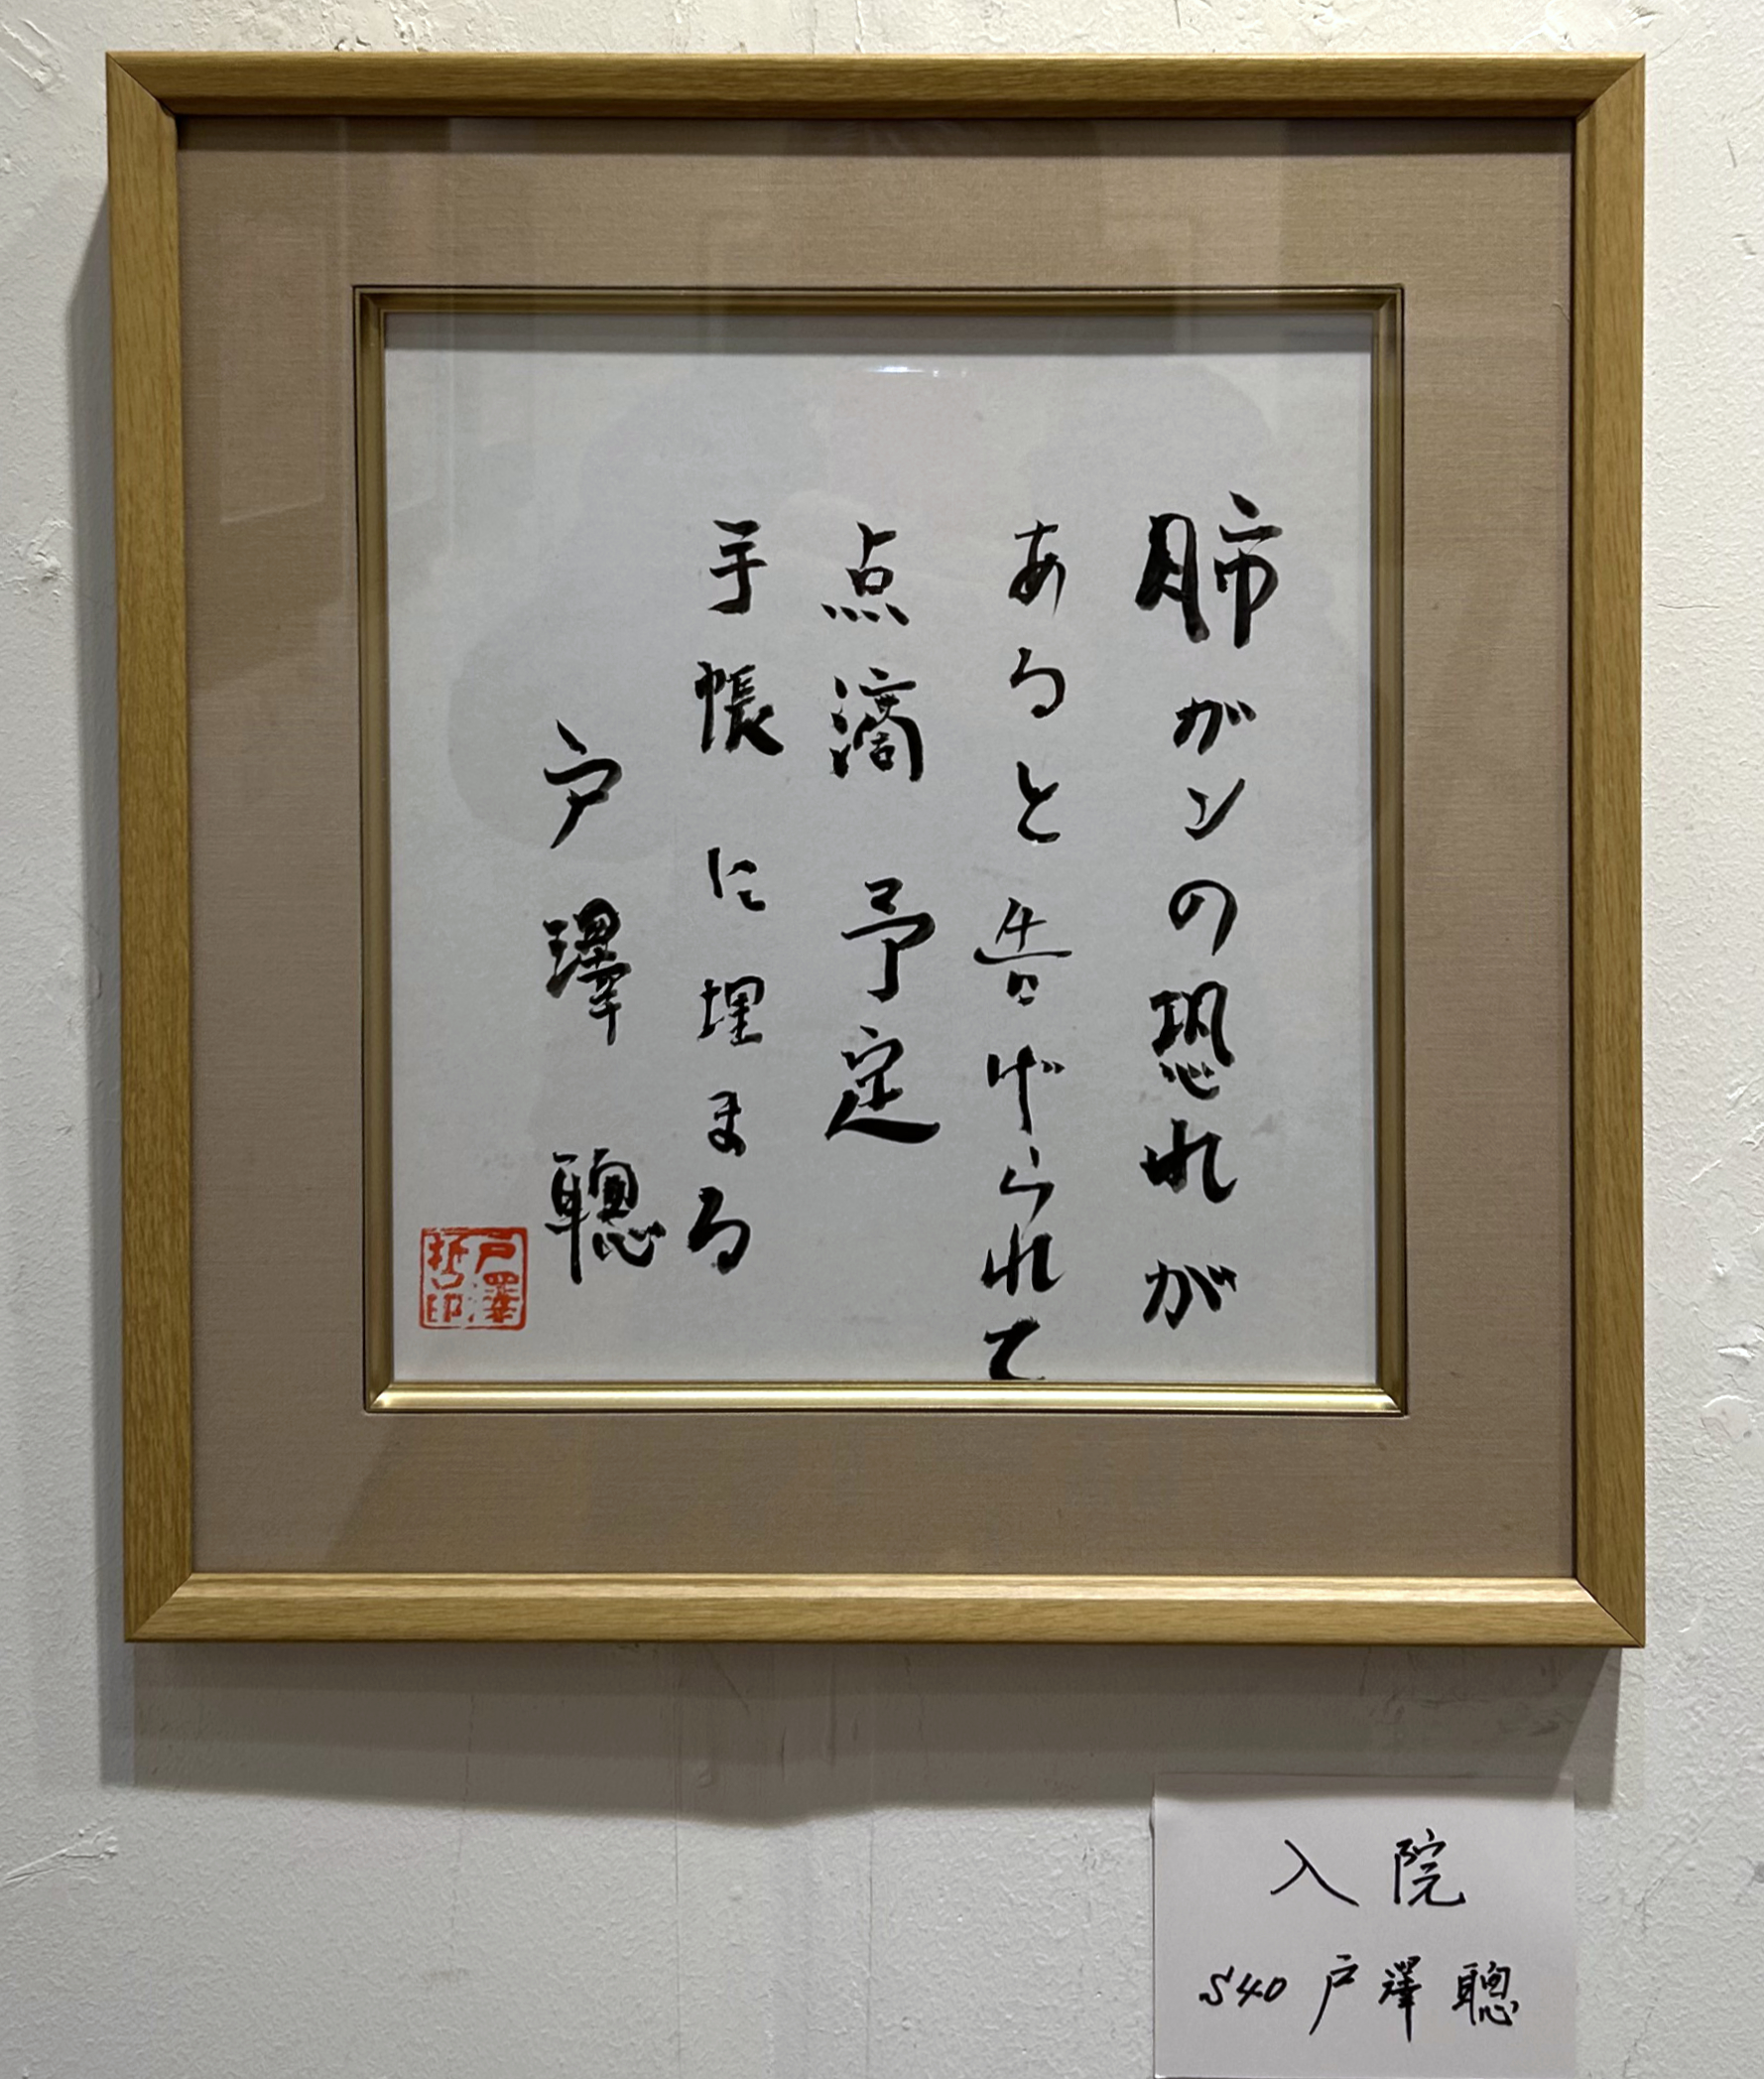 肺ガンの恐れが
あると告げられて
点滴予定
手帳に埋まる
戸澤聰
入院
S40 戸澤聰